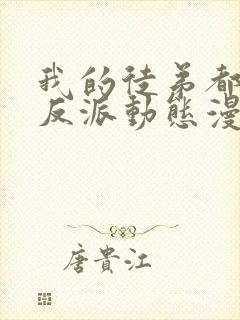 我的徒弟都
反派動態漫
唐貴江